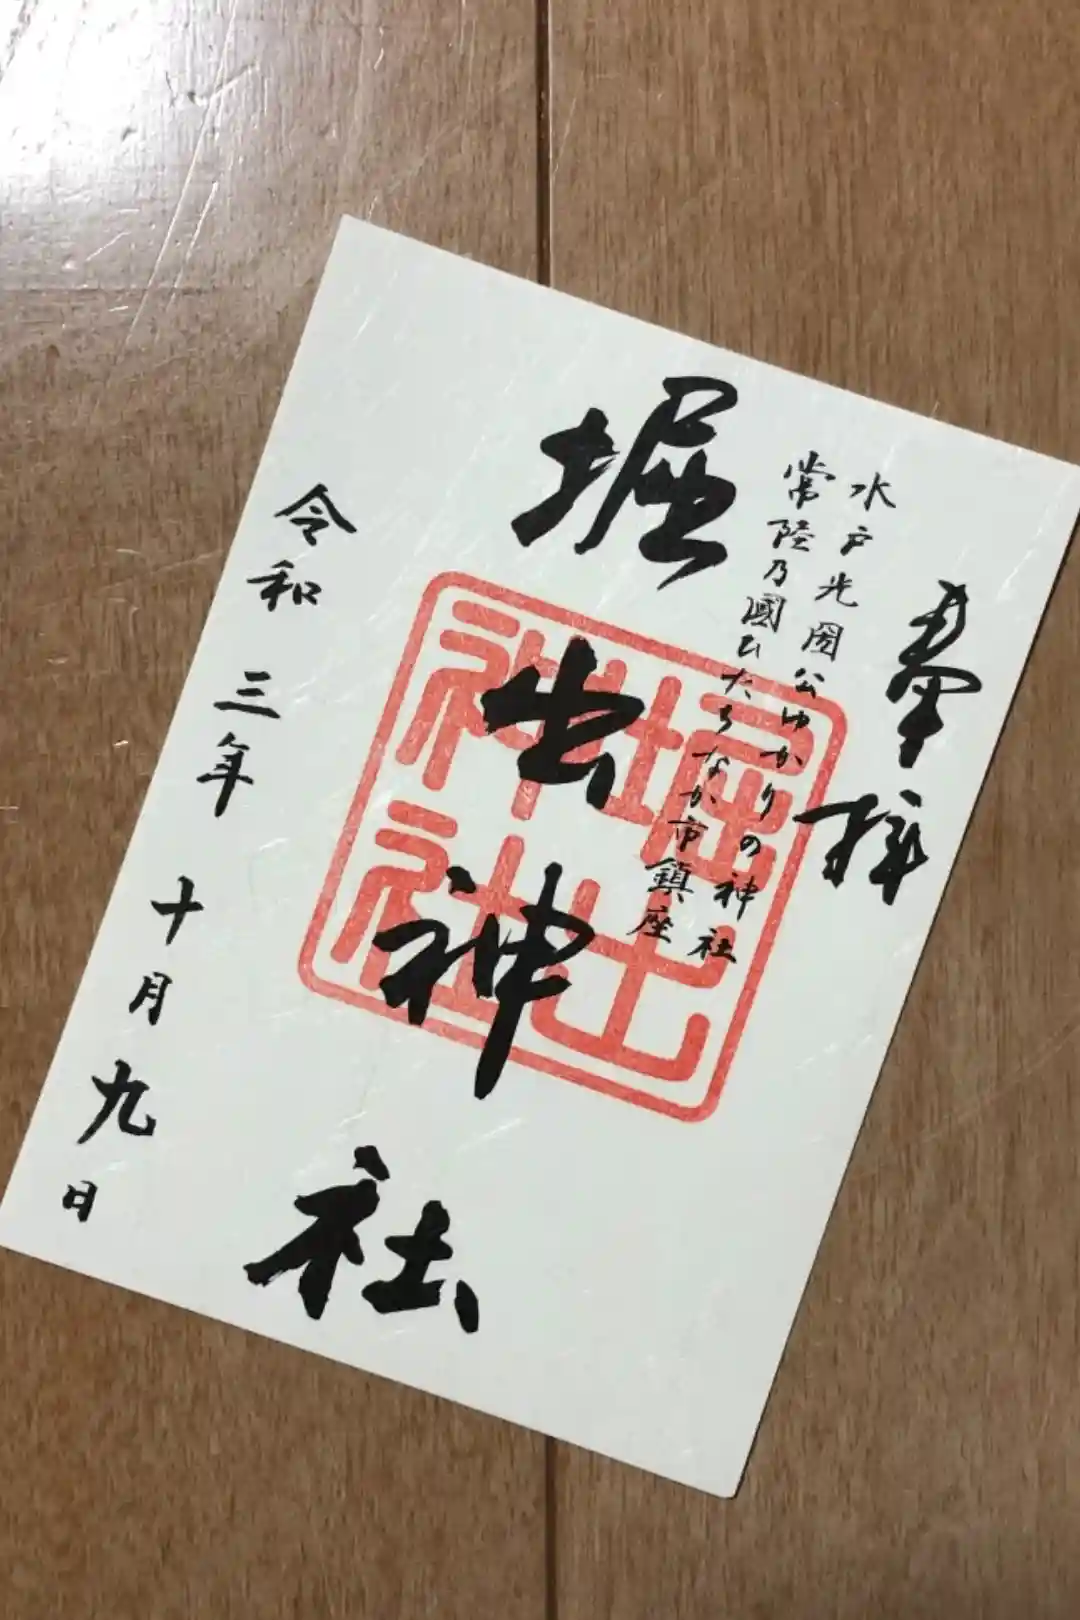 奉拝
水戸光圀公ゆかりの神社
常陸乃國ひたちなか市鎮座
堀出神社
堀出神社
令和三年十月九日